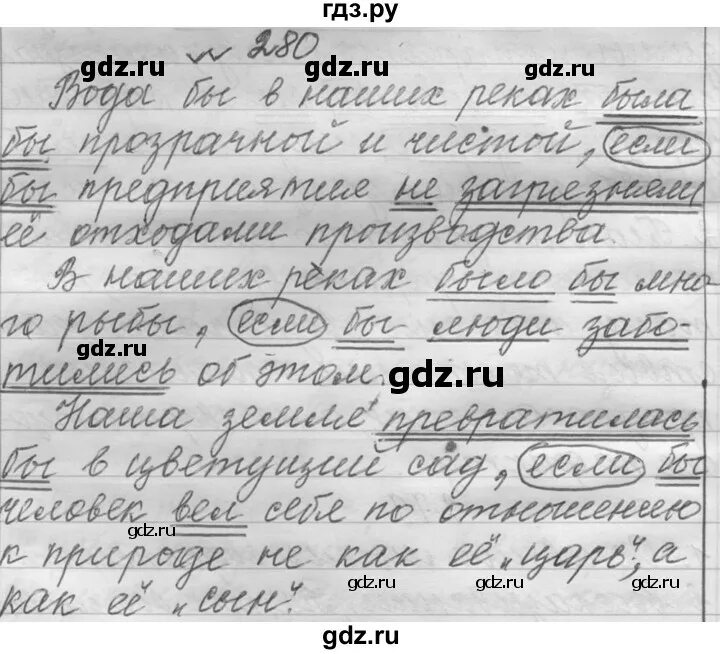 гдз.ру
№ 280
gdz.ru gdz.ru
Вода бы в наших реках была
бы прозрачной и чистой, если
бы предприятие не загрезняли
её отходами производства.
gdz.ru gdz.ru
В наших реках было бы мно-
го рыбы, если бы люди забо-
gdz.ru
тились об этом.
gdz.ru
Наша земля превратилась
бы в цветущий сад, если бы
gdz.ru gdz.ru
человек вел себя по отношению
gdz.ru
к природе не как её „царь“, а
gdz.ru
как её „сын“.
gdz.ru
gdz.ru